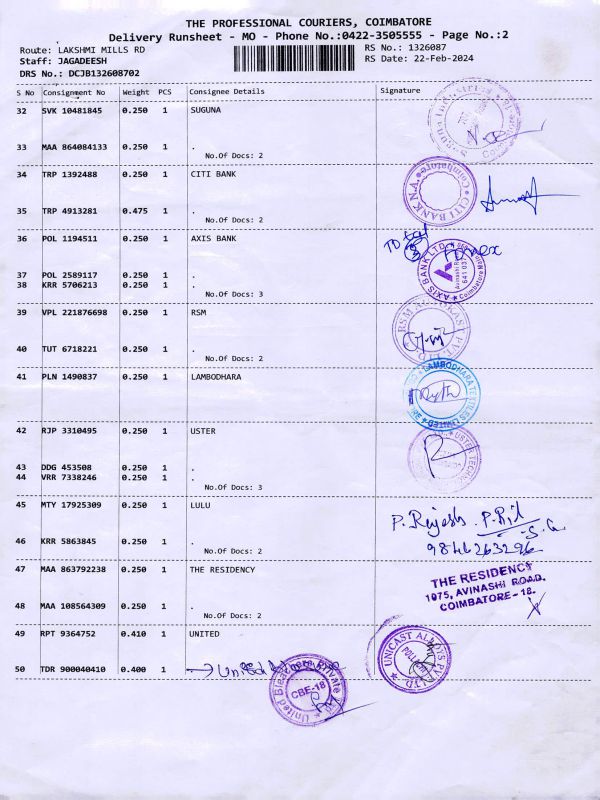 THE PROFESSIONAL COURIERS, COIMBATORE
Delivery Runsheet - MO - Phone No.:0422-3505555 - Page No.:2
Route: LAKSHMI MILLS RD
RS No.: 1326087
Staff: JAGADEESH
RS Date: 22-Feb-2024
DRS No.: DCJB132608702
S No Consignment No Weight PCS Consignee Details Signature
32 SVK 10481845 0.250 1 SUGUNA
33 MAA 864084133 0.250 1 .
No.Of Docs: 2
34 TRP 1392488 0.250 1 CITI BANK
CITI BANK N.A. Coimbatore
35 TRP 4913281 0.475 1 .
No.Of Docs: 2
36 POL 1194511 0.250 1 AXIS BANK
AXIS BANK LTD
641 037
Coimbatore
37 POL 2589117 0.250 1 .
38 KRR 5706213 0.250 1 .
No.Of Docs: 3
39 VPL 221876698 0.250 1 RSM
40 TUT 6718221 0.250 1 .
No.Of Docs: 2
41 PLN 1490837 0.250 1 LAMBODHARA
LAMBODHARA TEXTILES LIMITED
42 RJP 3310495 0.250 1 USTER
43 DDG 453508 0.250 1 .
44 VRR 7338246 0.250 1 .
No.Of Docs: 3
45 MTY 17925309 0.250 1 LULU
P. Rajesh
46 KRR 5863845 0.250 1 .
No.Of Docs: 2
47 MAA 863792238 0.250 1 THE RESIDENCY
THE RESIDENCY
1075, AVINASHI ROAD.
COIMBATORE-18.
48 MAA 108564309 0.250 1 .
No.Of Docs: 2
49 RPT 9364752 0.410 1 UNITED
UNICAST ALLOYS PVT LTD
50 TDR 900040410 0.400 1
United
United Bleachers Private Ltd
CBE-18